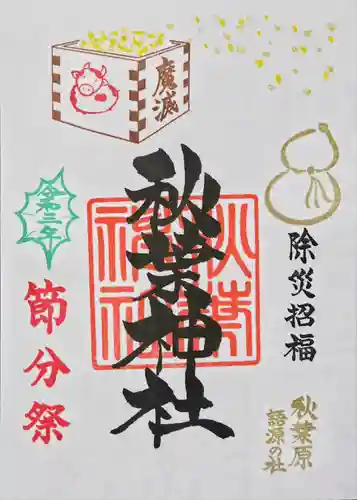 魔滅
除災招福
秋葉原
語源の社
秋葉神社
令和三年
節分祭